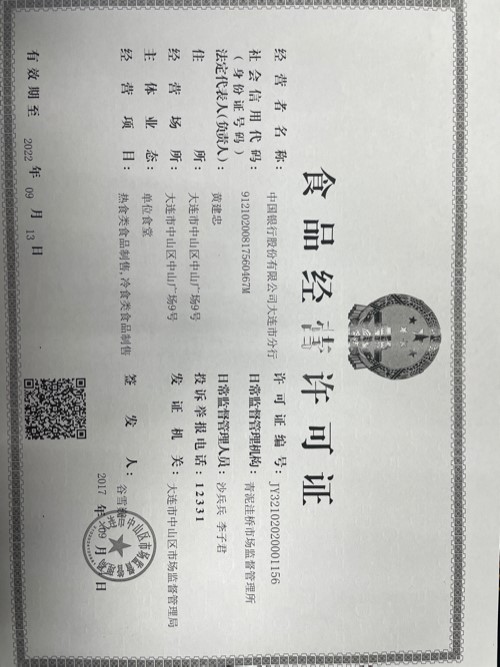 食品经营许可证
经营者名称： 中国银行股份有限公司大连市分行
社会信用代码： 91210200817560467M
（身份证号码）
法定代表人（负责人）： 黄建忠
住所： 大连市中山区中山广场9号
经营场所： 大连市中山区中山广场9号
主体业态： 单位食堂
经营项目： 热食类食品制售,冷食类食品制售
有效期至 2022 年 09 月 13 日
许可证编号： JY32102020001156
日常监督管理机构： 青泥洼桥市场监督管理所
日常监督管理人员： 沙兵兵 李子君
投诉举报电话： 12331
发证机关： 大连市中山区市场监督管理局
签发人： 谷雪
2017 年 09 月 日
中山区市场监督管